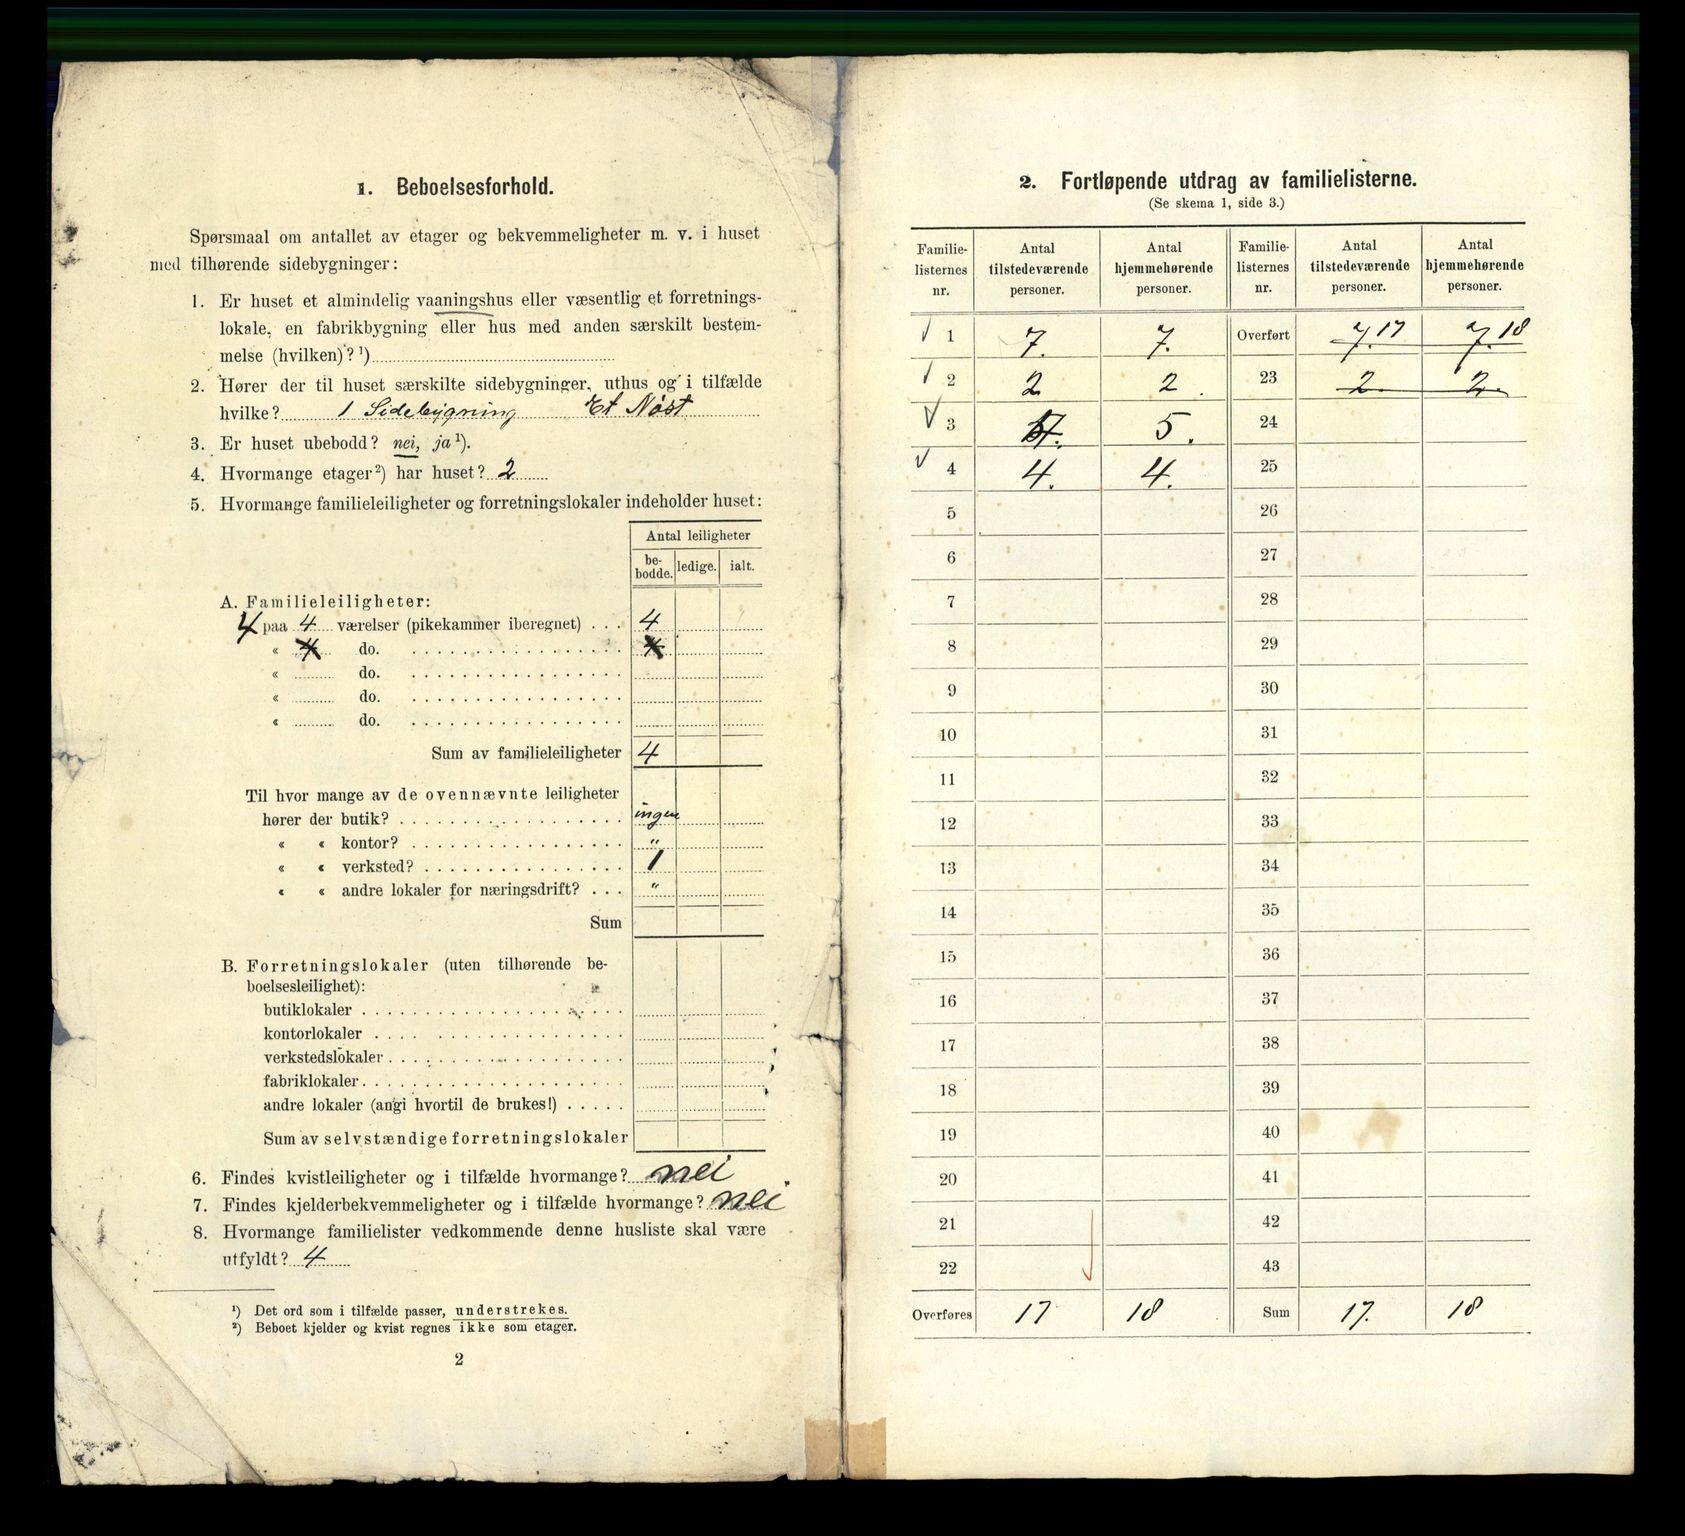 1. Beboelsesforhold.
Spørsmaal om antallet av etager og bekvemmeligheter m. v. i huset
med tilhørende sidebygninger:
1. Er huset et almindelig vaaningshus eller væsentlig et forretnings-
lokale, en fabrikbygning eller hus med anden særskilt bestem-
melse (hvilken)? ¹)
2. Hører der til huset særskilte sidebygninger, uthus og i tilfælde
hvilke? 1 Sidebygning Et Nøst
3. Er huset ubebodd? nei, ja ¹).
4. Hvormange etager ²) har huset? 2
5. Hvormange familieleiligheter og forretningslokaler indeholder huset:
Antal leiligheter
be-
bodde. ledige. ialt.
A. Familieleiligheter:
4 paa 4 værelser (pikekammer iberegnet) . . . 4
« 4 do.
« do.
« do.
« do.
Sum av familieleiligheter 4
Til hvor mange av de ovennævnte leiligheter
hører der butik? ingen
« « kontor? "
« « verksted? 1
« « andre lokaler for næringsdrift? . . . "
Sum
B. Forretningslokaler (uten tilhørende be-
boelsesleilighet):
butiklokaler
kontorlokaler
verkstedslokaler
fabriklokaler
andre lokaler (angi hvortil de brukes!)
Sum av selvstændige forretningslokaler
6. Findes kvistleiligheter og i tilfælde hvormange? nei
7. Findes kjelderbekvemmeligheter og i tilfælde hvormange? nei
8. Hvormange familielister vedkommende denne husliste skal være
utfyldt? 4
¹) Det ord som i tilfælde passer, understrekes.
²) Beboet kjelder og kvist regnes ikke som etager.
2
2. Fortløpende utdrag av familielisterne.
(Se skema 1, side 3.)
Familie-
listernes
nr.
Antal
tilstedeværende
personer.
Antal
hjemmehørende
personer.
Familie-
listernes
nr.
Antal
tilstedeværende
personer.
Antal
hjemmehørende
personer.
1 7. 7. Overført 7. 17 7. 18
2 2 2. 23 2. 2.
3 4. 5. 24
4 4. 4. 25
5 26
6 27
7 28
8 29
9 30
10 31
11 32
12 33
13 34
14 35
15 36
16 37
17 38
18 39
19 40
20 41
21 42
22 43
Overføres 17 18 Sum 17. 18